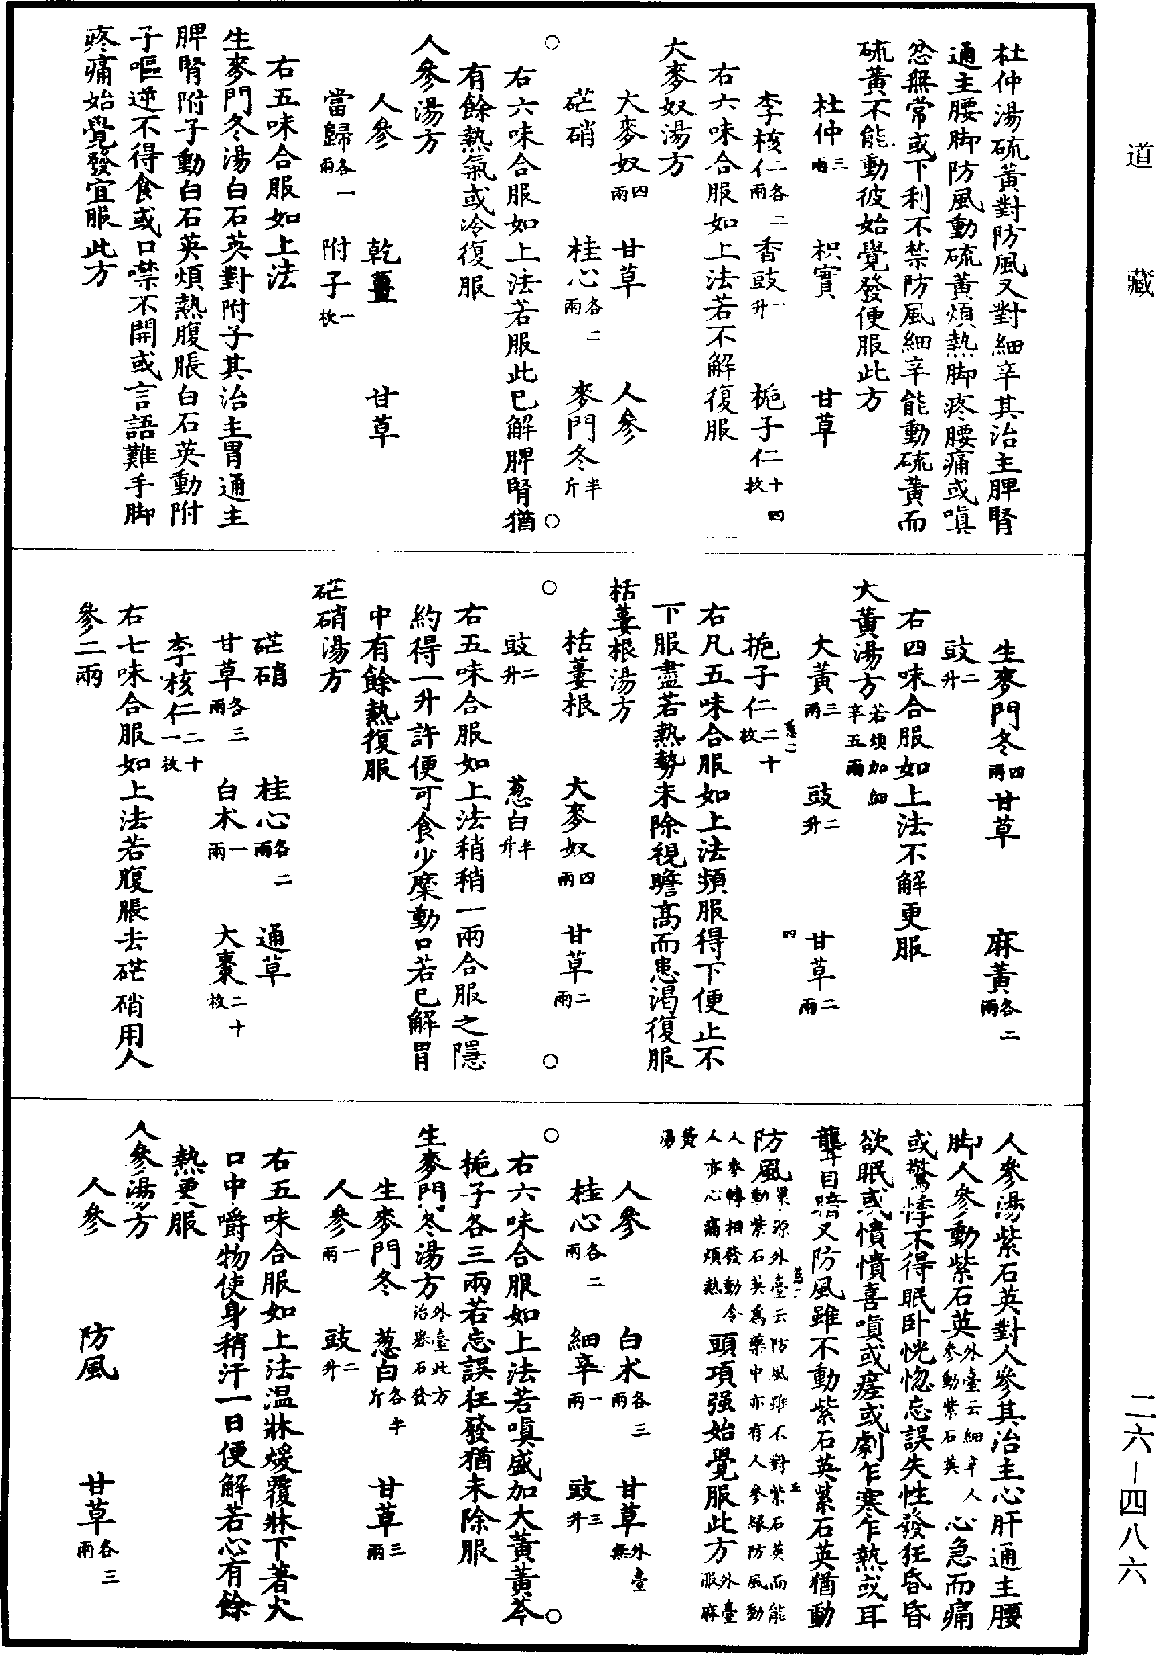 道藏
杜仲湯硫黃對防風又對細辛其治主脾腎
通主腰脚防風動硫黃煩熱脚疼腰痛或嗔
忿無常或下利不禁防風細辛能動硫黃而
硫黃不能動彼始覺發便服此方
杜仲三兩 枳實 甘草
李核仁各二兩 香豉二升 梔子仁十四枚
右六味合服如上法若不解復服
大麥奴湯方
大麥奴四兩 甘草 人參
芒硝 桂心各二兩 麥門冬半斤
右六味合服如上法若服此已解脾腎猶
有餘熱氣或冷復服
人參湯方
人參 乾薑 甘草
當歸各一兩 附子一枚
右五味合服如上法
生麥門冬湯白石英對附子其治主胃通主
脾腎附子動白石英煩熱腹脹白石英動附
子嘔逆不得食或口噤不開或言語難手脚
疼痛始覺發宜服此方
生麥門冬四兩 甘草 麻黃各二兩
豉二升
右四味合服如上法不解更服
大黃湯方若煩加細辛五兩
大黃三兩 豉二升 甘草二兩
梔子仁二十枚
右凡五味合服如上法頻服得下便止不
下服盡若熱勢未除視瞻高而患渴復服
栝蔞根湯方
栝蔞根 大麥奴四兩 甘草二兩
豉二升 葱白半升
右五味合服如上法稍稍一兩合服之隱
約得一升許便可食少糜動口若已解胃
中有餘熱復服
芒硝湯方
芒硝 桂心各二兩 通草
甘草各三兩 白朮一兩 大棗二十枚
李核仁二十一枚
右七味合服如上法若腹脹去芒硝用人
參二兩
人參湯紫石英對人參其治主心肝通主腰
脚人參動紫石英外臺云細辛人參動紫石英心急而痛
或驚悸不得眠卧恍惚忘誤失性發狂昏昏
欲眠或憒憒喜嗔或瘥或劇乍寒乍熱或耳
聾目暗又防風雖不動紫石英紫石英猶動
防風巢源外臺云防風雖不對紫石英而能動紫石英爲藥中亦有人參緣防風動人參轉相發動令人亦心痛煩熱外臺服麻黃湯頭項强始覺服此方
人參 白朮各三兩 甘草外臺無
桂心各二兩 細辛一兩 豉三升
右六味合服如上法若嗔盛加大黃黃芩
梔子各三兩若忘誤狂發猶未除服
生麥門冬湯方外臺此方治礜石發
生麥門冬 葱白各半斤 甘草三兩
人參一兩 豉二升
右五味合服如上法溫牀煖覆牀下著火
口中嚼物使身稍汗一日便解若心有餘
熱更服
人參湯方
人參 防風 甘草各三兩
二六—四八六